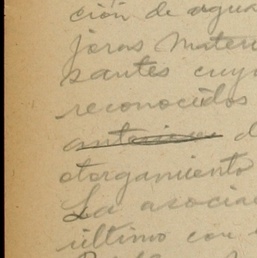 ción de agua
joras mater
santes cuy
reconocidos
anterior d
otorgamiento
La asocia
último con